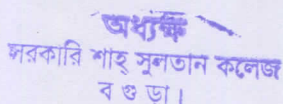 অধ্যক্ষ
সরকারি শাহ্ সুলতান কলেজ
বগুড়া।